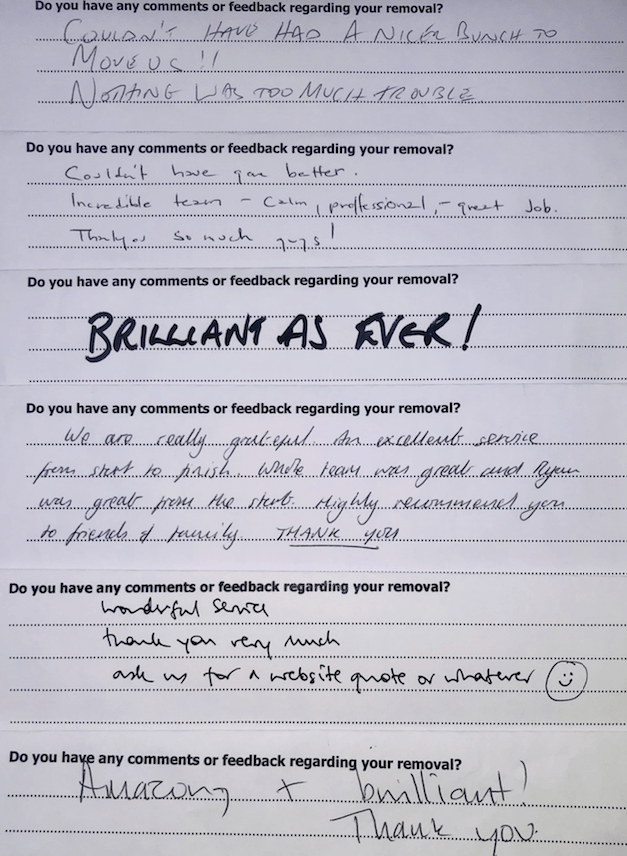 Do you have any comments or feedback regarding your removal?
COULDN'T HAVE HAD A NICER BUNCH TO
MOVE US !!
NOTHING WAS TOO MUCH TROUBLE.
Do you have any comments or feedback regarding your removal?
Couldn't have gone better.
Incredible team - Calm, proffessional, - great Job.
Thankyou so much guys!
Do you have any comments or feedback regarding your removal?
BRILLIANT AS EVER!
Do you have any comments or feedback regarding your removal?
We are really grateful. An excellent service
from start to finish. Whole team was great and Ryan
was great from the start. Highly recommend you
to friends & family. THANK YOU
Do you have any comments or feedback regarding your removal?
wonderful service
thank you very much
ask us for a website quote or whatever ☺
Do you have any comments or feedback regarding your removal?
Amazing + brilliant!
Thank you.